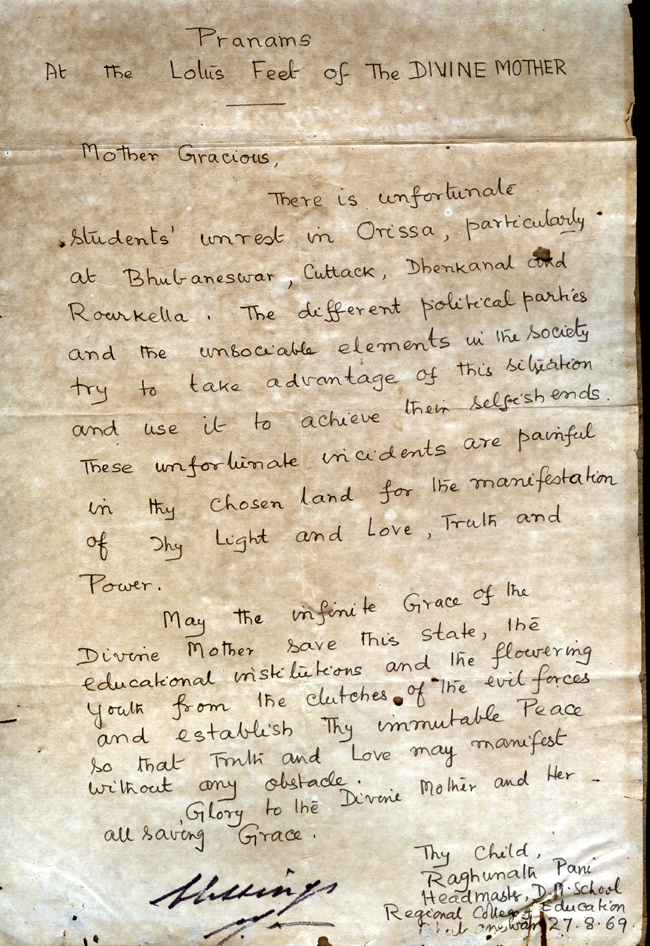 Pranams
At the Lotus Feet of The DIVINE MOTHER
Mother Gracious,
There is unfortunate
students' unrest in Orissa, particularly
at Bhubaneswar, Cuttack, Dhenkanal and
Rourkella. The different political parties
and the unsociable elements in the society
try to take advantage of this situation
and use it to achieve their selfish ends.
These unfortunate incidents are painful
in thy chosen land for the manifestation
of Thy Light and Love, Truth and
Power.
May the infinite Grace of the
Divine Mother save this state, the
educational institutions and the flowering
youth from the clutches of the evil forces
and establish Thy immutable Peace
so that Truth and Love may manifest
without any obstacle.
Glory to the Divine Mother and Her
all saving Grace.
Thy Child,
Raghunath Pani
Headmaster, D.M. School
Regional College of Education
Bhubaneswar 27.8.69
Blessings